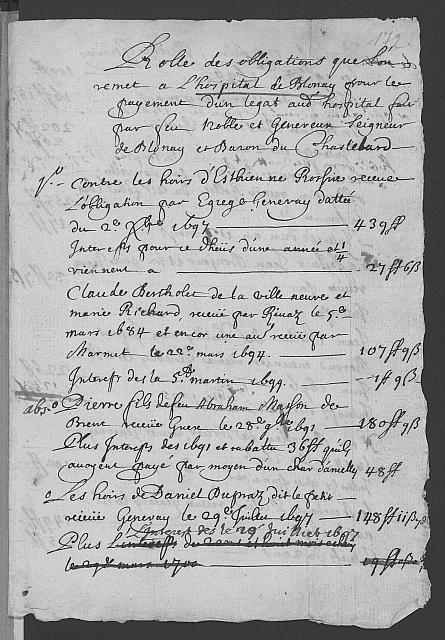 172
Rolle des obligations que Lon
remet a L'hospital de Blonay pour le
payement d'un legat aud hospital fait
par feu Noble et Genereux Seigneur
de Blonay et Baron du Chastelard
1o. Contre les hoirs d'Esthienne receue
L'obligation par Egrege Genevay dattée
du 2e xbre 1697 439 ff
Interests pour ce dheus d'une année et 1/4
viennent a 27 ff 6 ß
Claude Bertholet de la ville neuve et
marie Richard receue par Rivaz le 5e
mars 1684 et encor une au receue par
Marmet le 22e mars 1694. 107 ff 9 ß
Interest des la St martin 1699. 1 ff 9 ß
abs. o Pierre fils de feu Abraham Masson de
Brent receue Guex le 28e 9bre 1691 180 ff 9 ß
Plus Interests des 1691 et rabattu 36 ff quils
avoyent payé par moyen d'un char 48 ff
o Les hoirs de Daniel Dupraz dit le petit
receue Genevay le 29e Juillet 1697 148 ff 11 ß
L'interest des le 29e Juillet 1697
Plus
le mars 1700 19 ff